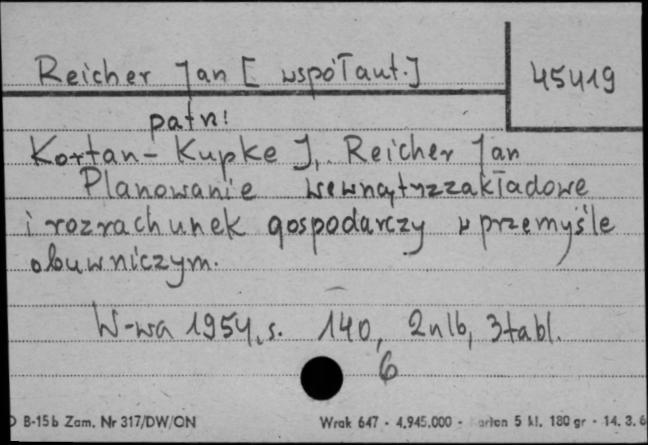 Reicher Jan [współaut.]
45419
patrz:
Kortan-Kupke J., Reicher Jan
Planowanie wewnątrzzakładowe
i rozrachunek gospodarczy w przemyśle
obuwniczym.
W-wa 1954, s. 140, 2nlb, 3tabl.
6
B-15b Zam. Nr 317/DW/ON
Wrak 647 - 4.945.000 - Karton 5 kl. 180 gr - 14. 3. 6